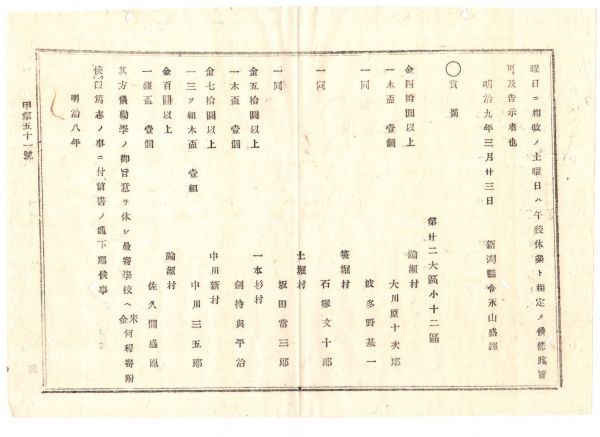 曜日ニ相改メ土曜日ハ午後休業ト相定メ候條此旨
可及告示者也
明治九年三月廿三日　新潟縣令永山盛輝
〇賞與
第廿二大區小十二區
金四拾圓以上　論瀬村
一木盃　壹個　大川原十次郎
一同　波多野基一
笹堀村
一同　石塚文十郎
土堀村
一同　坂田常三郎
金五拾圓以上　一本杉村
一木盃　壹個　劔持與平治
金七拾圓以上　中川新村
一三ツ組木盃　壹組　中川三五郎
金百圓以上　論瀬村
一銀盃　壹個　佐久間盛胤
其方儀勸學ノ御旨意ヲ休シ最寄學校ヘ金米何程寄附
候段篤志ノ事ニ付前書ノ通下賜候事
明治八年
甲第五十一號